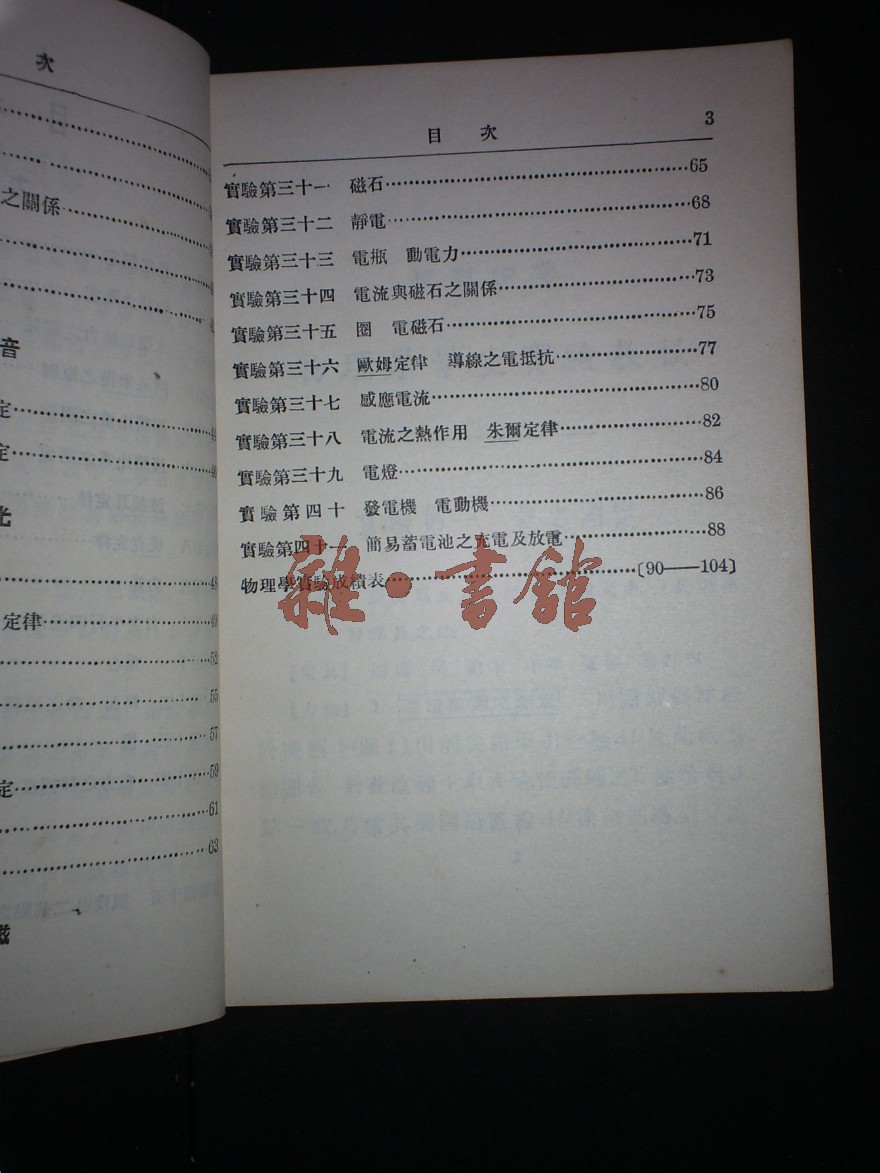 次
之關係
音
定
44
定
46
光
48
定律 49
52
55
57
定 59
61
63
磁
目 次 3
實驗第三十一 磁石 65
實驗第三十二 靜電 68
實驗第三十三 電瓶 動電力 71
實驗第三十四 電流與磁石之關係 73
實驗第三十五 圈 電磁石 75
實驗第三十六 歐姆定律 導線之電抵抗 77
實驗第三十七 感應電流 80
實驗第三十八 電流之熱作用 朱爾定律 82
實驗第三十九 電燈 84
實驗第四十 發電機 電動機 86
實驗第四十一 簡易蓄電池之充電及放電 88
物理學實驗成績表 〔90——104〕
雜·書館